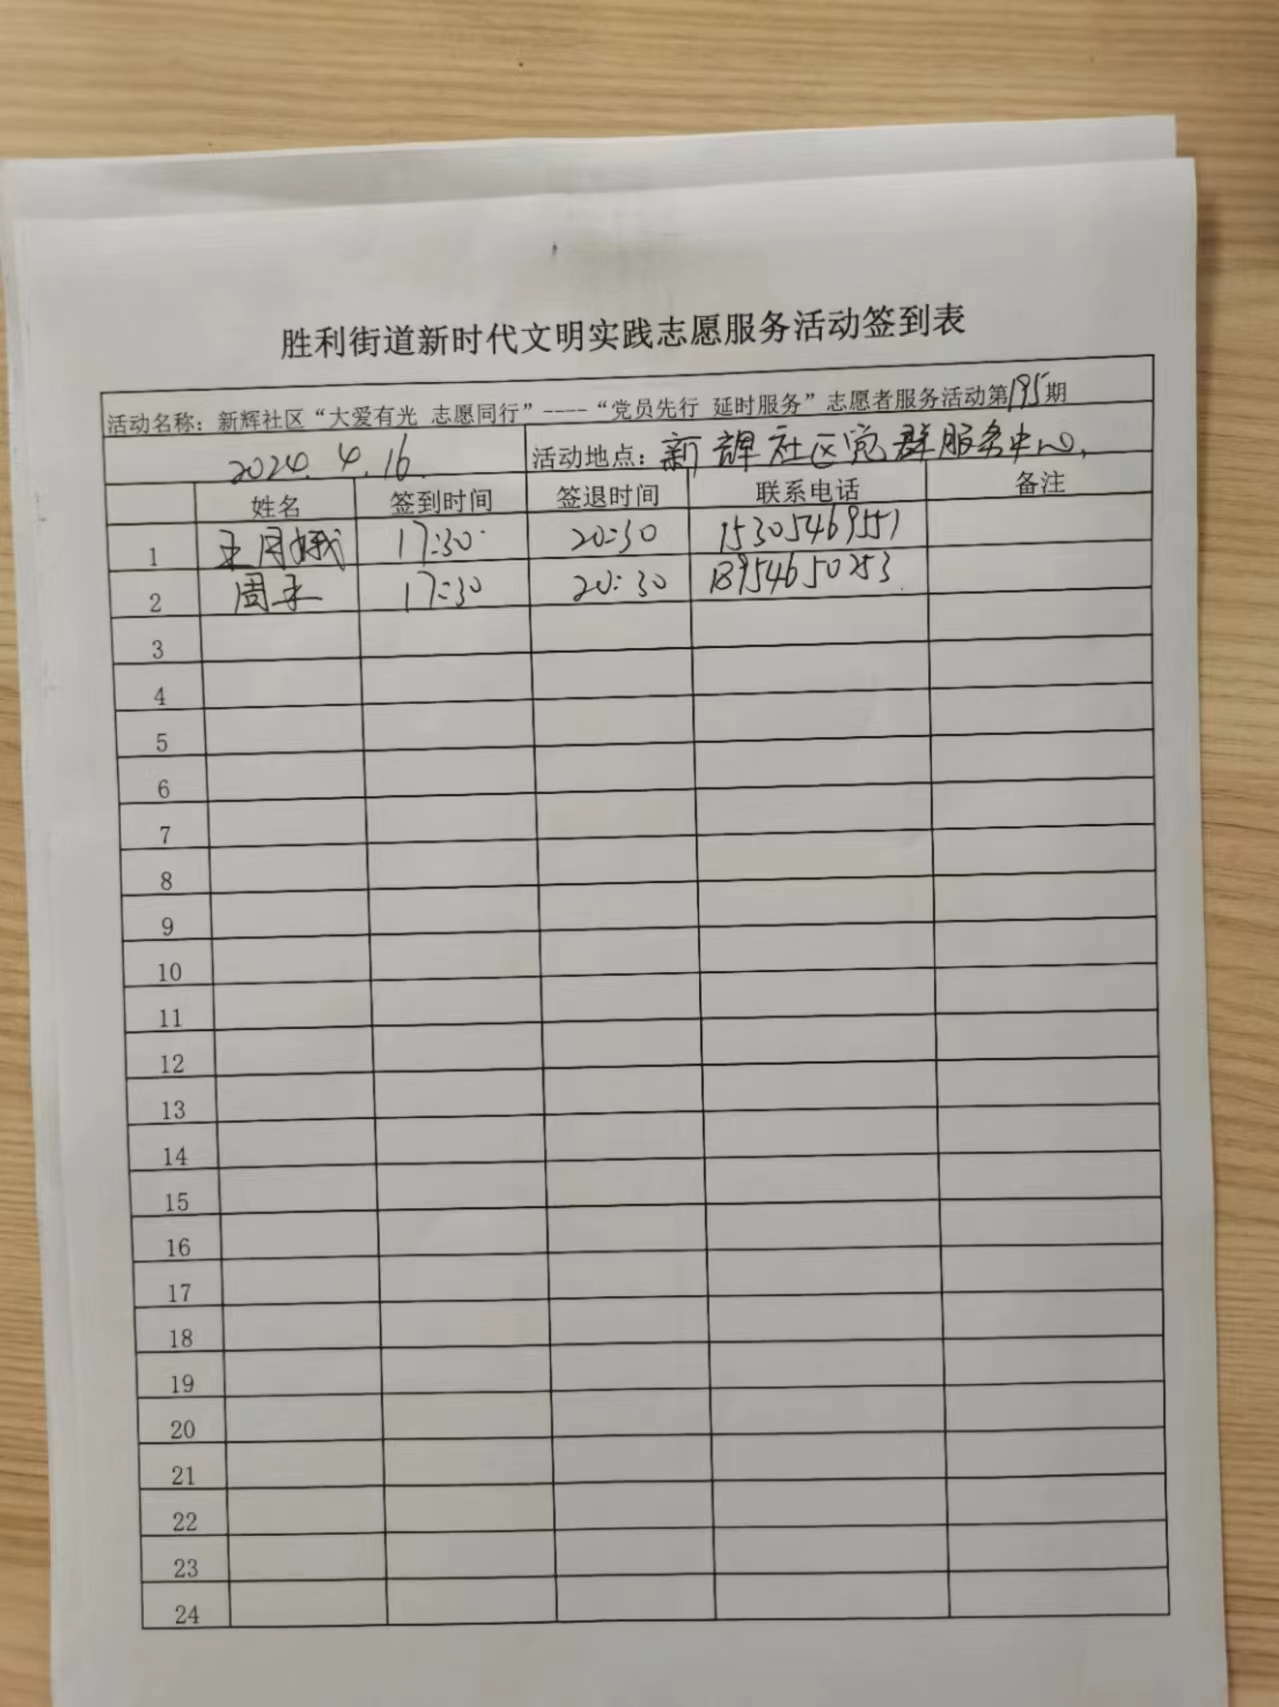 胜利街道新时代文明实践志愿服务活动签到表
活动名称：新辉社区“大爱有光 志愿同行”----“党员先行 延时服务”志愿者服务活动第195期
2024.4.16 活动地点：新辉社区党群服务中心.
姓名 签到时间 签退时间 联系电话 备注
1 王月娥 17:30 20:30 15305469551
2 周 17:30 20:30 13954650253
3
4
5
6
7
8
9
10
11
12
13
14
15
16
17
18
19
20
21
22
23
24